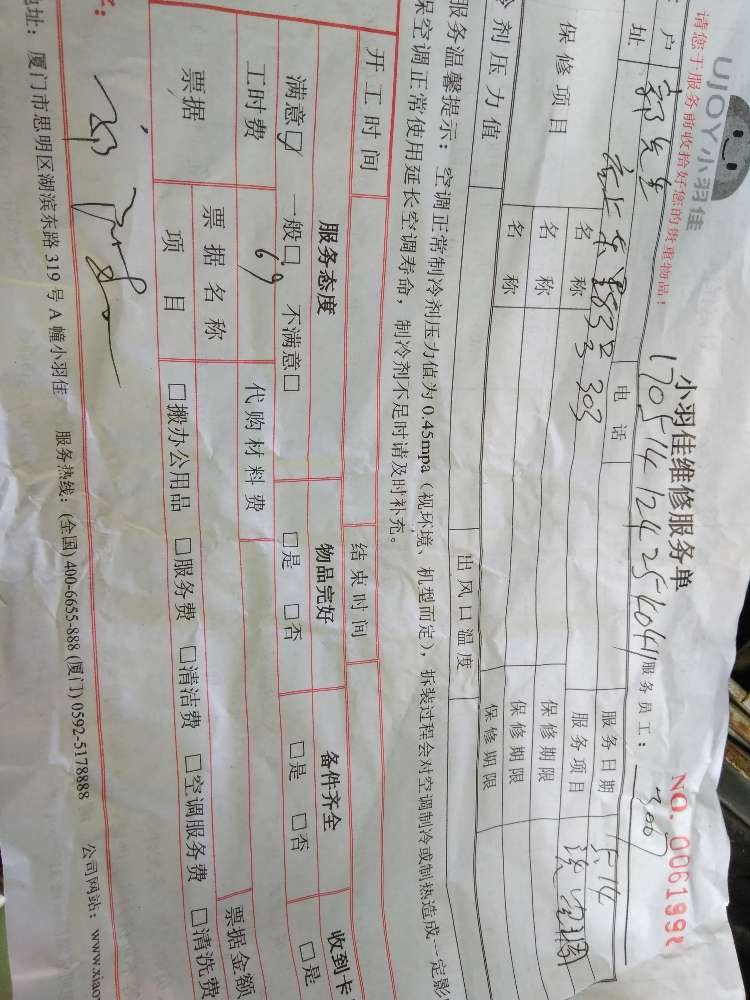 UJOY小羽佳
请您于服务前收拾好您的贵重物品！
小羽佳维修服务单
NO. 0061998
服务员工：
户 郭先生 电话 服务日期 5.14
址 303 服务项目
保修项目 名称 保修期限
名称 保修期限
名称 保修期限
冷剂压力值 出风口温度
服务温馨提示：空调正常制冷剂压力值为0.45mpa（视环境、机型而定），拆装过程会对空调制冷或制热造成一定影
保空调正常使用延长空调寿命，制冷剂不足时请及时补充。
开工时间 结束时间
服务态度 物品完好 备件齐全 收到卡
满意☑ 一般□ 不满意□ □是 □否 □是 □否 □是
工时费 69 代购材料费
票据 票据名称 票据金额
项目 □搬办公用品 □服务费 □清洁费 □空调服务费 □清洗费
地址：厦门市思明区湖滨东路319号A幢小羽佳 服务热线：(全国) 400-6655-888 (厦门) 0592-5178888 公司网站：www.xiao